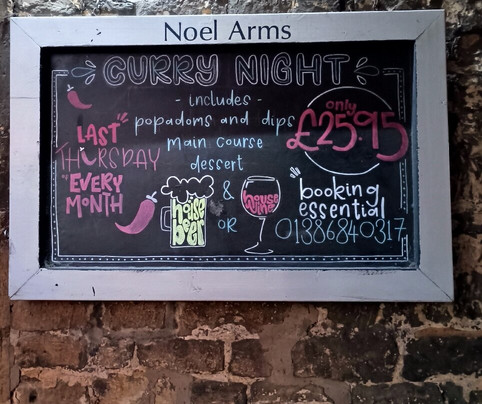 Noel Arms
CURRY NIGHT
- includes -
popadoms and dips
main course
dessert
& OR
house
beer
house
wine
LAST
THURSDAY
EVERY
MONTH
only
£25.95
booking
essential
01386840317